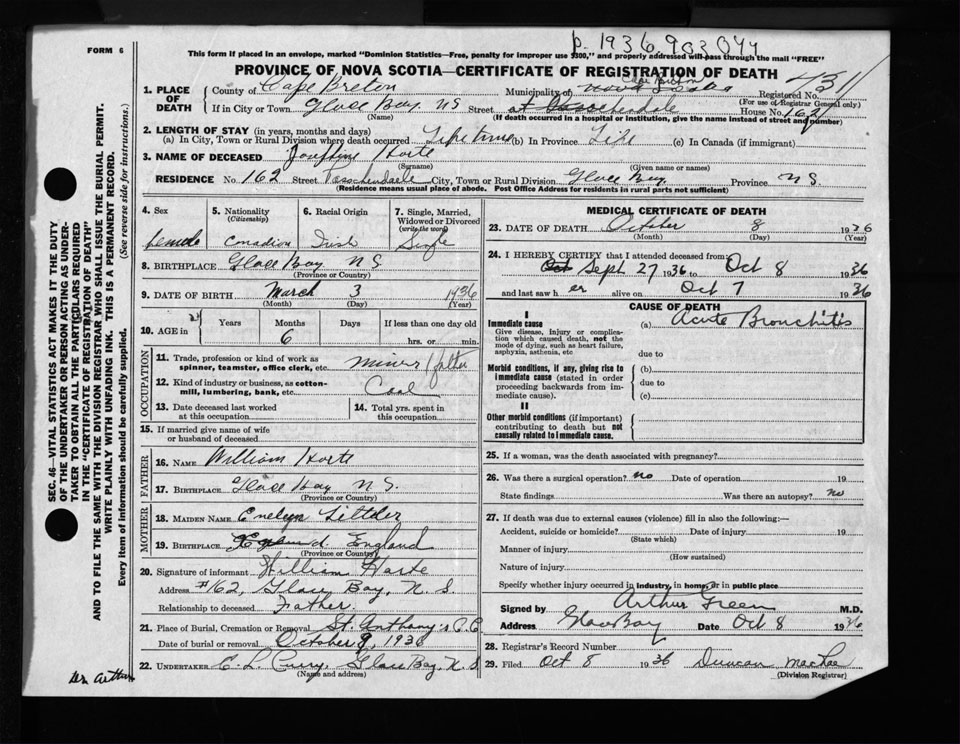 p. 1936 903044
FORM 6
This form if placed in an envelope, marked "Dominion Statistics—Free, penalty for improper use $300," and properly addressed will pass through the mail "FREE"
PROVINCE OF NOVA SCOTIA—CERTIFICATE OF REGISTRATION OF DEATH
1. PLACE OF DEATH
County of Cape Breton Municipality of Nova Scotia Cape Breton Registered No. 4311
(For use of Registrar General only)
If in City or Town Glace Bay. N S Street House No. 162
(Name) (If death occurred in a hospital or institution, give the name instead of street and number)
2. LENGTH OF STAY (in years, months and days)
(a) In City, Town or Rural Division where death occurred Life time (b) In Province Life (c) In Canada (if immigrant)
3. NAME OF DECEASED Josephine Harte
(Surname) (Given name or names)
RESIDENCE No. 162 Street Passchendaele City, Town or Rural Division Glace Bay Province N S
(Residence means usual place of abode. Post Office Address for residents in rural parts not sufficient)
4. Sex 5. Nationality (Citizenship) 6. Racial Origin 7. Single, Married, Widowed or Divorced (write the word)
female Canadian Irish Single
8. BIRTHPLACE Glace Bay N S
(Province or Country)
9. DATE OF BIRTH March 3 1936
(Month) (Day) (Year)
10. AGE in Years Months Days If less than one day old
6 hrs. or min.
OCCUPATION
11. Trade, profession or kind of work as spinner, teamster, office clerk, etc. Miner / father
12. Kind of industry or business, as cotton-mill, lumbering, bank, etc. Coal
13. Date deceased last worked at this occupation
14. Total yrs. spent in this occupation
15. If married give name of wife or husband of deceased
FATHER
16. NAME William Harte
17. BIRTHPLACE Glace Bay N S.
(Province or Country)
MOTHER
18. MAIDEN NAME Evelyn
19. BIRTHPLACE England
(Province or Country)
20. Signature of informant William Harte
Address #162, Glace Bay, N. S.
Relationship to deceased Father.
21. Place of Burial, Cremation or Removal St. Anthony's C.C.
Date of burial or removal October 9, 1936
22. UNDERTAKER E. L. Curry, Glace Bay, N. S
(Name and address)
MEDICAL CERTIFICATE OF DEATH
23. DATE OF DEATH October 8 1936
(Month) (Day) (Year)
24. I HEREBY CERTIFY that I attended deceased from:
Oct Sept 27 1936 to Oct 8 1936
and last saw h er alive on Oct 7 1936
CAUSE OF DEATH
I
Immediate cause (a) Acute Bronchitis
Give disease, injury or complication which caused death, not the mode of dying, such as heart failure, asphyxia, asthenia, etc
due to
Morbid conditions, if any, giving rise to immediate cause (stated in order proceeding backwards from immediate cause).
(b)
due to
(c)
II
Other morbid conditions (if important) contributing to death but not causally related to immediate cause.
25. If a woman, was the death associated with pregnancy?
26. Was there a surgical operation? no Date of operation 19
State findings Was there an autopsy? no
27. If death was due to external causes (violence) fill in also the following:—
Accident, suicide or homicide? Date of injury 19
(State which)
Manner of injury
(How sustained)
Nature of injury
Specify whether injury occurred in industry, in home, or in public place
Signed by Arthur Green M.D.
Address Glace Bay Date Oct 8 1936
28. Registrar's Record Number
29. Filed Oct 8 1936 Duncan MacRae
(Division Registrar)
SEC. 46—VITAL STATISTICS ACT MAKES IT THE DUTY
OF THE UNDERTAKER OR PERSON ACTING AS UNDER-
TAKER TO OBTAIN ALL THE PARTICULARS REQUIRED
IN THE "CERTIFICATE OF REGISTRATION OF DEATH"
AND TO FILE THE SAME WITH THE DIVISION REGISTRAR WHO SHALL ISSUE THE BURIAL PERMIT.
WRITE PLAINLY WITH UNFADING INK. THIS IS A PERMANENT RECORD.
Every item of information should be carefully supplied. (See reverse side for instructions.)